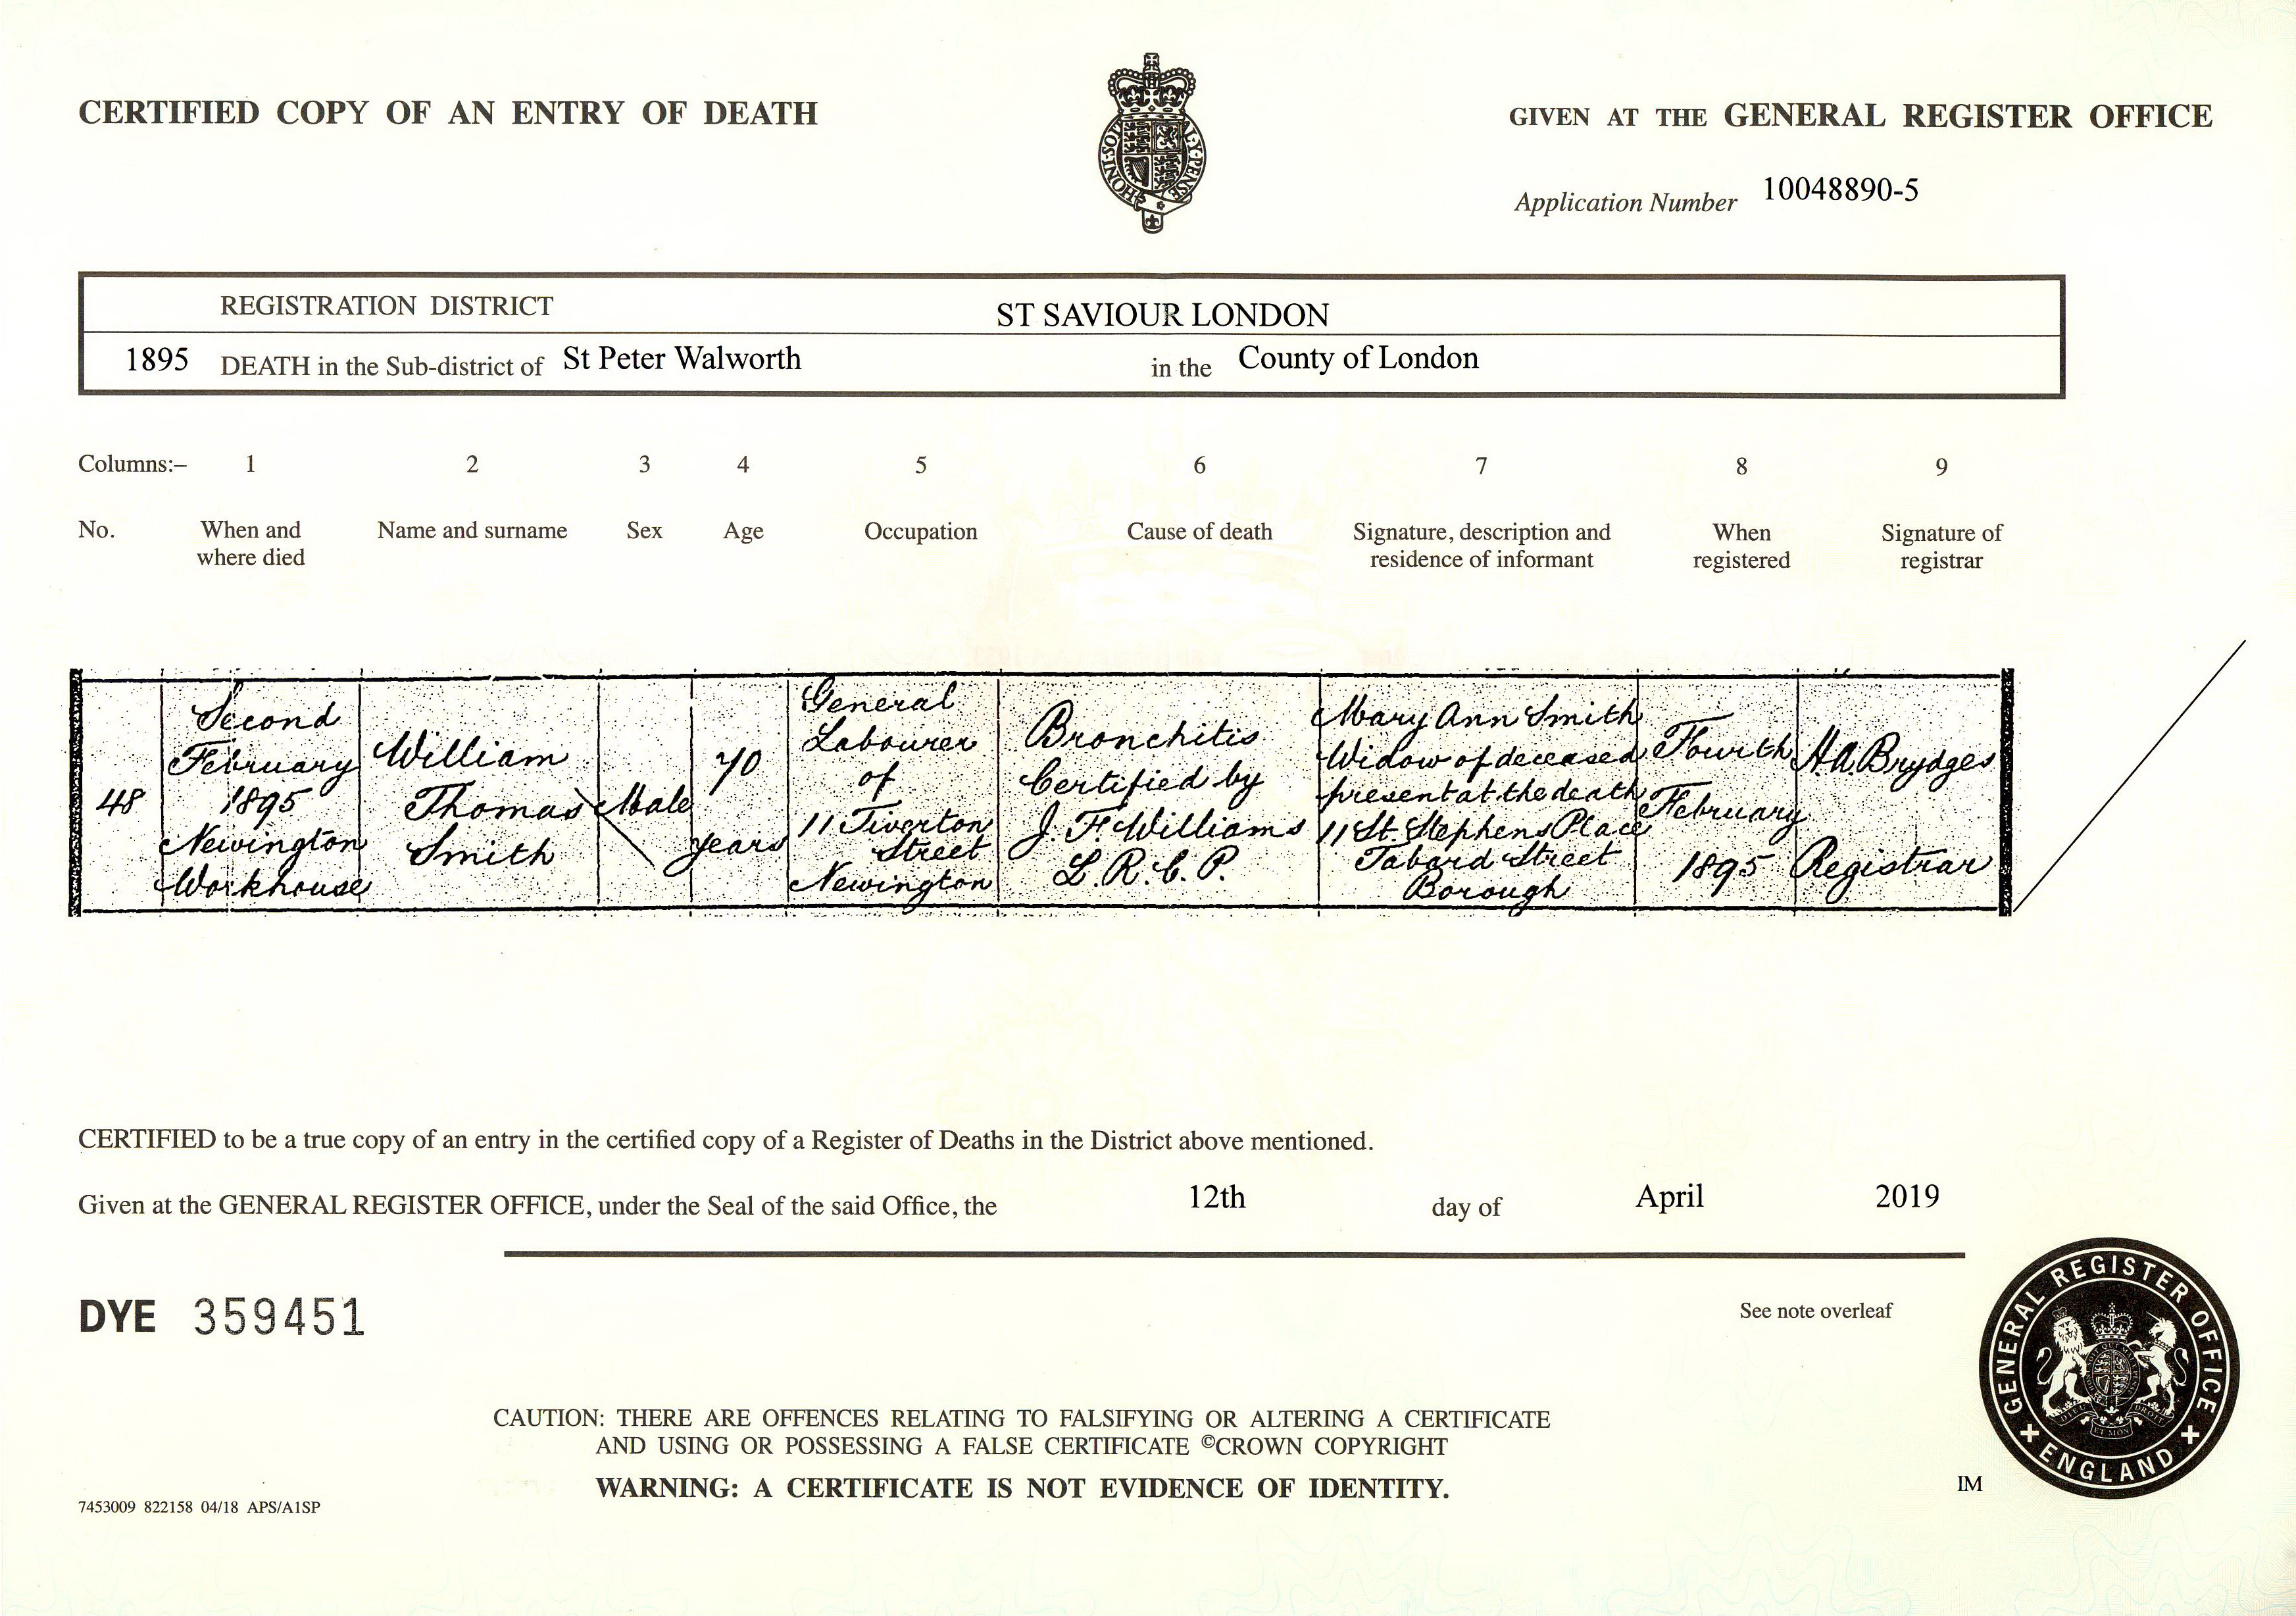 CERTIFIED COPY OF AN ENTRY OF DEATH
GIVEN AT THE GENERAL REGISTER OFFICE
HONI·SOI AL·Y·PENSE
Application Number 10048890-5
REGISTRATION DISTRICT ST SAVIOUR LONDON
1895 DEATH in the Sub-district of St Peter Walworth in the County of London
Columns:– 1 2 3 4 5 6 7 8 9
No.
When and
where died
Name and surname
Sex
Age
Occupation
Cause of death
Signature, description and
residence of informant
When
registered
Signature of
registrar
48
Second
February
1895
Newington
Workhouse
William
Thomas
Smith
Male
70
years
General
Labourer
of
11 Tiverton
Street
Newington
Bronchitis
Certified by
J. F. Williams
L.R.C.P.
Mary Ann Smith
Widow of deceased
present at the death
11 St. Stephens Place
Tabard Street
Borough
Fourth
February
1895
H.A. Brydges
Registrar
CERTIFIED to be a true copy of an entry in the certified copy of a Register of Deaths in the District above mentioned.
Given at the GENERAL REGISTER OFFICE, under the Seal of the said Office, the 12th day of April 2019
DYE 359451
See note overleaf
GENERAL REGISTER OFFICE
DIEU DROIT
ET MON
+ ENGLAND +
CAUTION: THERE ARE OFFENCES RELATING TO FALSIFYING OR ALTERING A CERTIFICATE
AND USING OR POSSESSING A FALSE CERTIFICATE ©CROWN COPYRIGHT
WARNING: A CERTIFICATE IS NOT EVIDENCE OF IDENTITY.
IM
7453009 822158 04/18 APS/A1SP